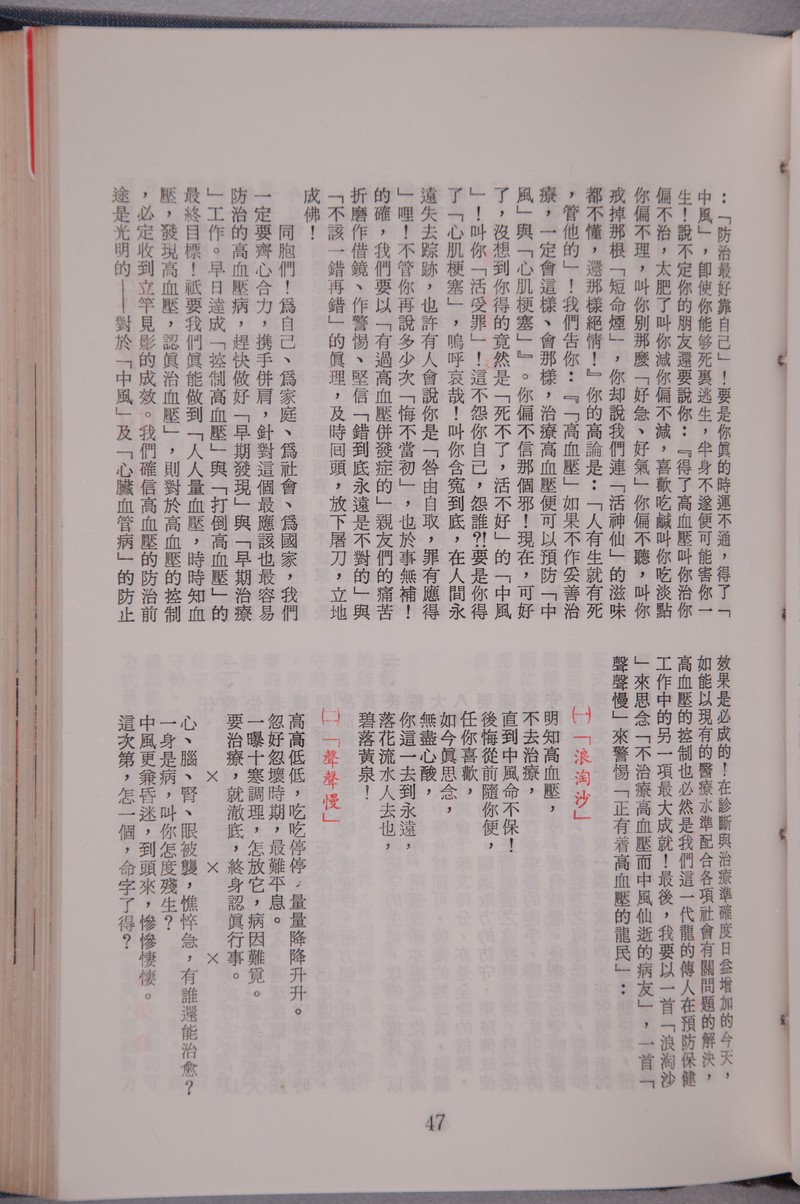 ：「防治最好靠自己」！要是你眞的時運不通，得了「
中風」，卽使你能够死裏逃生，半身不遂便可能害你一
生！說不定你的朋友還要說你：『得了高血壓叫你治你
偏不治，太肥了叫你減你偏不減，喜歡吃鹹叫你吃淡點
你偏不理，叫你別那麼「好急、好氣」你偏不聽，叫你
戒掉那根「短命煙」，你却說我們連「活神仙」的滋味
都不懂，還那樣絕情！』你的高論是：「人有生就有死
，管他的」！我們告你：『「高血壓」如果不作妥善治
療，一定會這樣、會那樣，治療高血壓便可以預防「中
風」與「心肌梗塞」』。你偏不信那個邪！現在，可好
了，沒想到你得的竟然是「死不了，活不好」的「中風
」！叫你「活受罪」！這不怨你自己，怨誰?!要是你得
了「心肌梗塞」，嗚呼哀哉！叫你含寃到底，在人間永
遠失去踪跡，也許有人會說你是「咎由自取，罪有應得
」哩！不管你再說多少次「悔不當初」，也於事無補！
的確，我們要以「有過高血壓併發症的」親友們的痛苦
折磨作借鏡、作警惕、堅信「錯到底永遠是不對的」與
「不該一錯再錯」的眞理，及時囘頭，放下屠刀，立地
成佛！
同胞們！爲自己、爲家庭、爲社會、爲國家，我們
一定要齊心合力，携手併肩，針對這個最應該也最容易
防治的高血壓病，趕快做好「早期發現」與「早期治療
」工作。早日達成「控制高血壓」與「打倒高血壓」的
最終目標！祇要我們眞能做到「人人量血壓，時時知血
壓，發現高血壓，認眞治血壓」，則對於高血壓的控制
，必定收到立竿見影的成效。我們確信高血壓的防治前
途是光明的——對於「中風」及「心臟血管病」的防止
效果是必成的！在診斷與治療準確度日益增加的今天，
如能以現有的醫療水準配合各項社會有關問題的解決，
高血壓的控制也必然是我們這一代龍的傳人在預防保健
工作中的另一項最大成就！最後，我要以一首「浪淘沙
」來思念「不治療高血壓而中風仙逝的病友」，一首「
聲聲慢」來警惕「正有着高血壓的龍民」：
㈠「浪淘沙」
明知高血壓，
不去治療，
直到中風命不保！
後悔從前隨你便，
任你喜歡，
如今眞思念，
無盡心酸，
你這一去到永遠，
落花流水人去也，
碧落黃泉！
㈡「聲聲慢」
高高低低，吃吃停停，量量降降升升。
忽好忽壞時期，最難平息。
一曝十寒調理，怎放它，病因難覓。
要治療，就澈底，終身認眞行事。
×　×　×
心、腦、腎、眼被襲，憔悴急，有誰還能治愈？
一身是病，叫你怎度殘生？
中風更兼昏迷，到頭來，慘慘悽悽。
這次第，怎一個，命字了得？
47